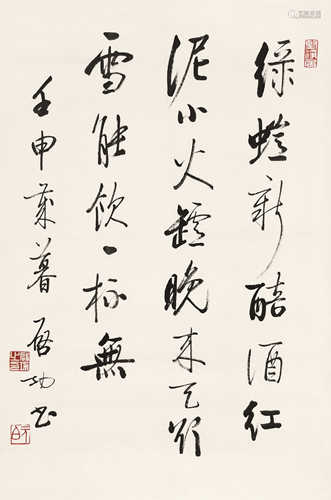 綠螘新醅酒紅
泥小火罏晚來天欲
雪能飲一杯無
壬申歲暮 啟功書